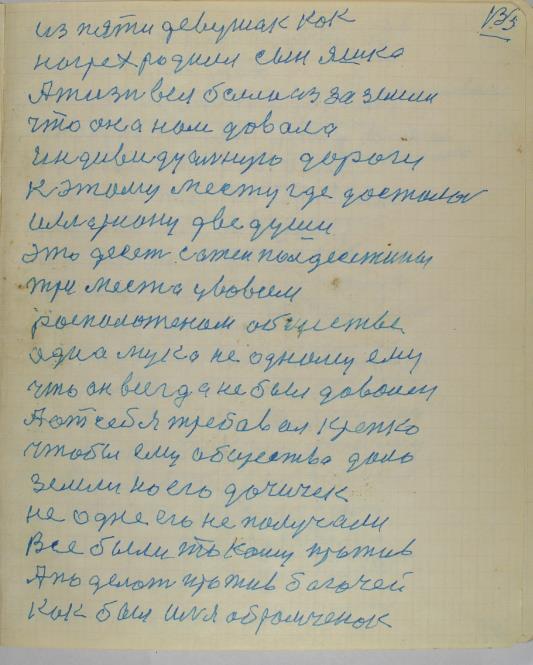 135
из пяти девушак кок
нагрех родился сын яшка
А тизи вел белиаз за земли
что она нам довала
индивидуалную дороги
к этому месту где достолос
иллариону две души
это десет сажен пол десетины
три места у во всем
росположеном обществе
одна мука не одному ему
что он всегда не был доволен
А от себя требавал крепко
чтобы ему общества дало
земли но его дочичек
не одне его не получали
Все были токому против
А по делом против богочей
кок был илья обромченок